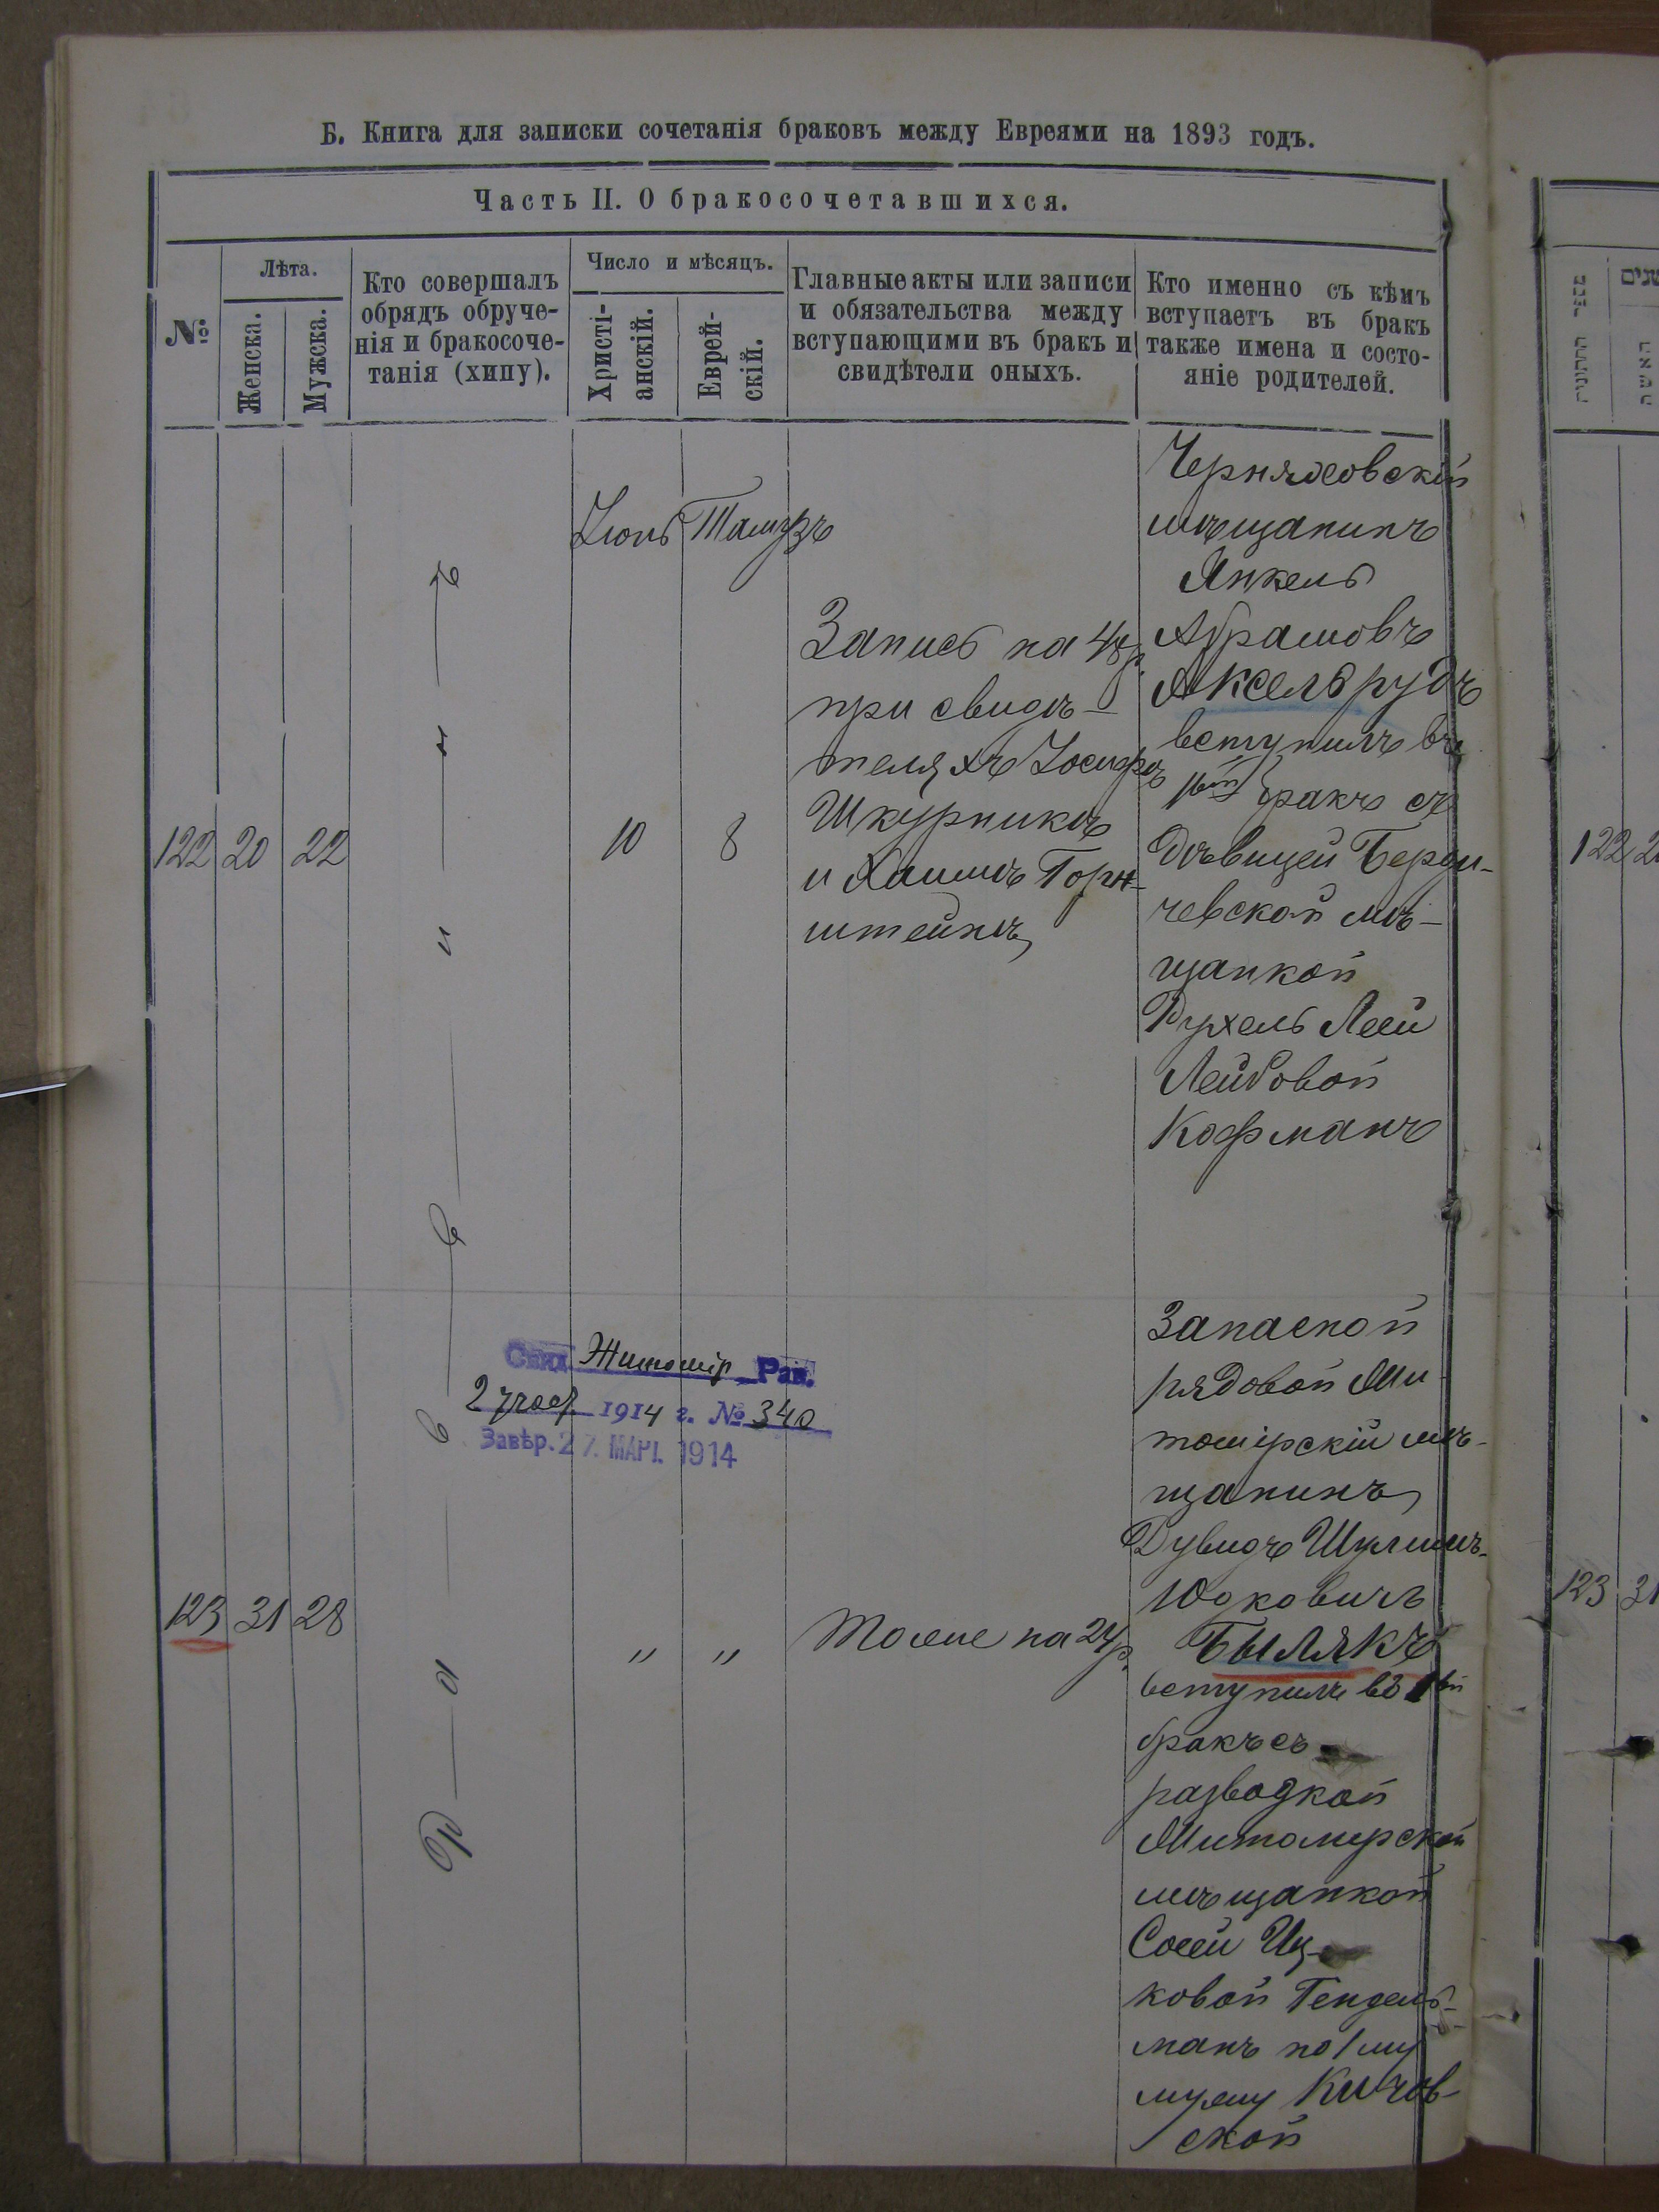 Б. Книга для записки сочетанія браковъ между Евреями на 1893 годъ.
Часть II. О бракосочетавшихся.
№
Лѣта.
Женска.
Мужска.
Кто совершалъ
обрядъ обруче-
нія и бракосоче-
танія (хипу).
Число и мѣсяцъ.
Христі-
анскій.
Еврей-
скій.
Главные акты или записи
и обязательства между
вступающими въ бракъ и
свидѣтели оныхъ.
Кто именно съ кѣмъ
вступаетъ въ бракъ
также имена и состо-
яніе родителей.
Раввинъ
122 20 22
Тамузъ
10 8
Запись на 48 р.
при свидѣ-
теляхъ Іосифѣ
Шкурникѣ
и Хаимѣ Горн-
штейнѣ
Черняховскій
мѣщанинъ
Янкель
Абрамовъ
Аксельрудъ
вступилъ въ
1ый бракъ съ
дѣвицей Берди-
чевской мѣ-
щанкой
Рухель Леей
Лейбовой
Кофманъ
Свид Житомір Рав.
2 участ. 1914 г. № 340
Завѣр. 27. МАР. 1914
123 31 28
" "
Тоже на 24 р.
Запасной
рядовой Жи-
томірскій мѣ-
щанинъ
Дувидъ Шулимъ-
Юдковичъ
Былякъ
вступилъ въ 1ый
бракъ съ
разводкой
Житомирской
мѣщанкой
Сосей Иц-
ковой Гендель-
манъ по 1му
мужу Кичов-
ской
מספר החתונות
שנים
האשה
122 2
123 31